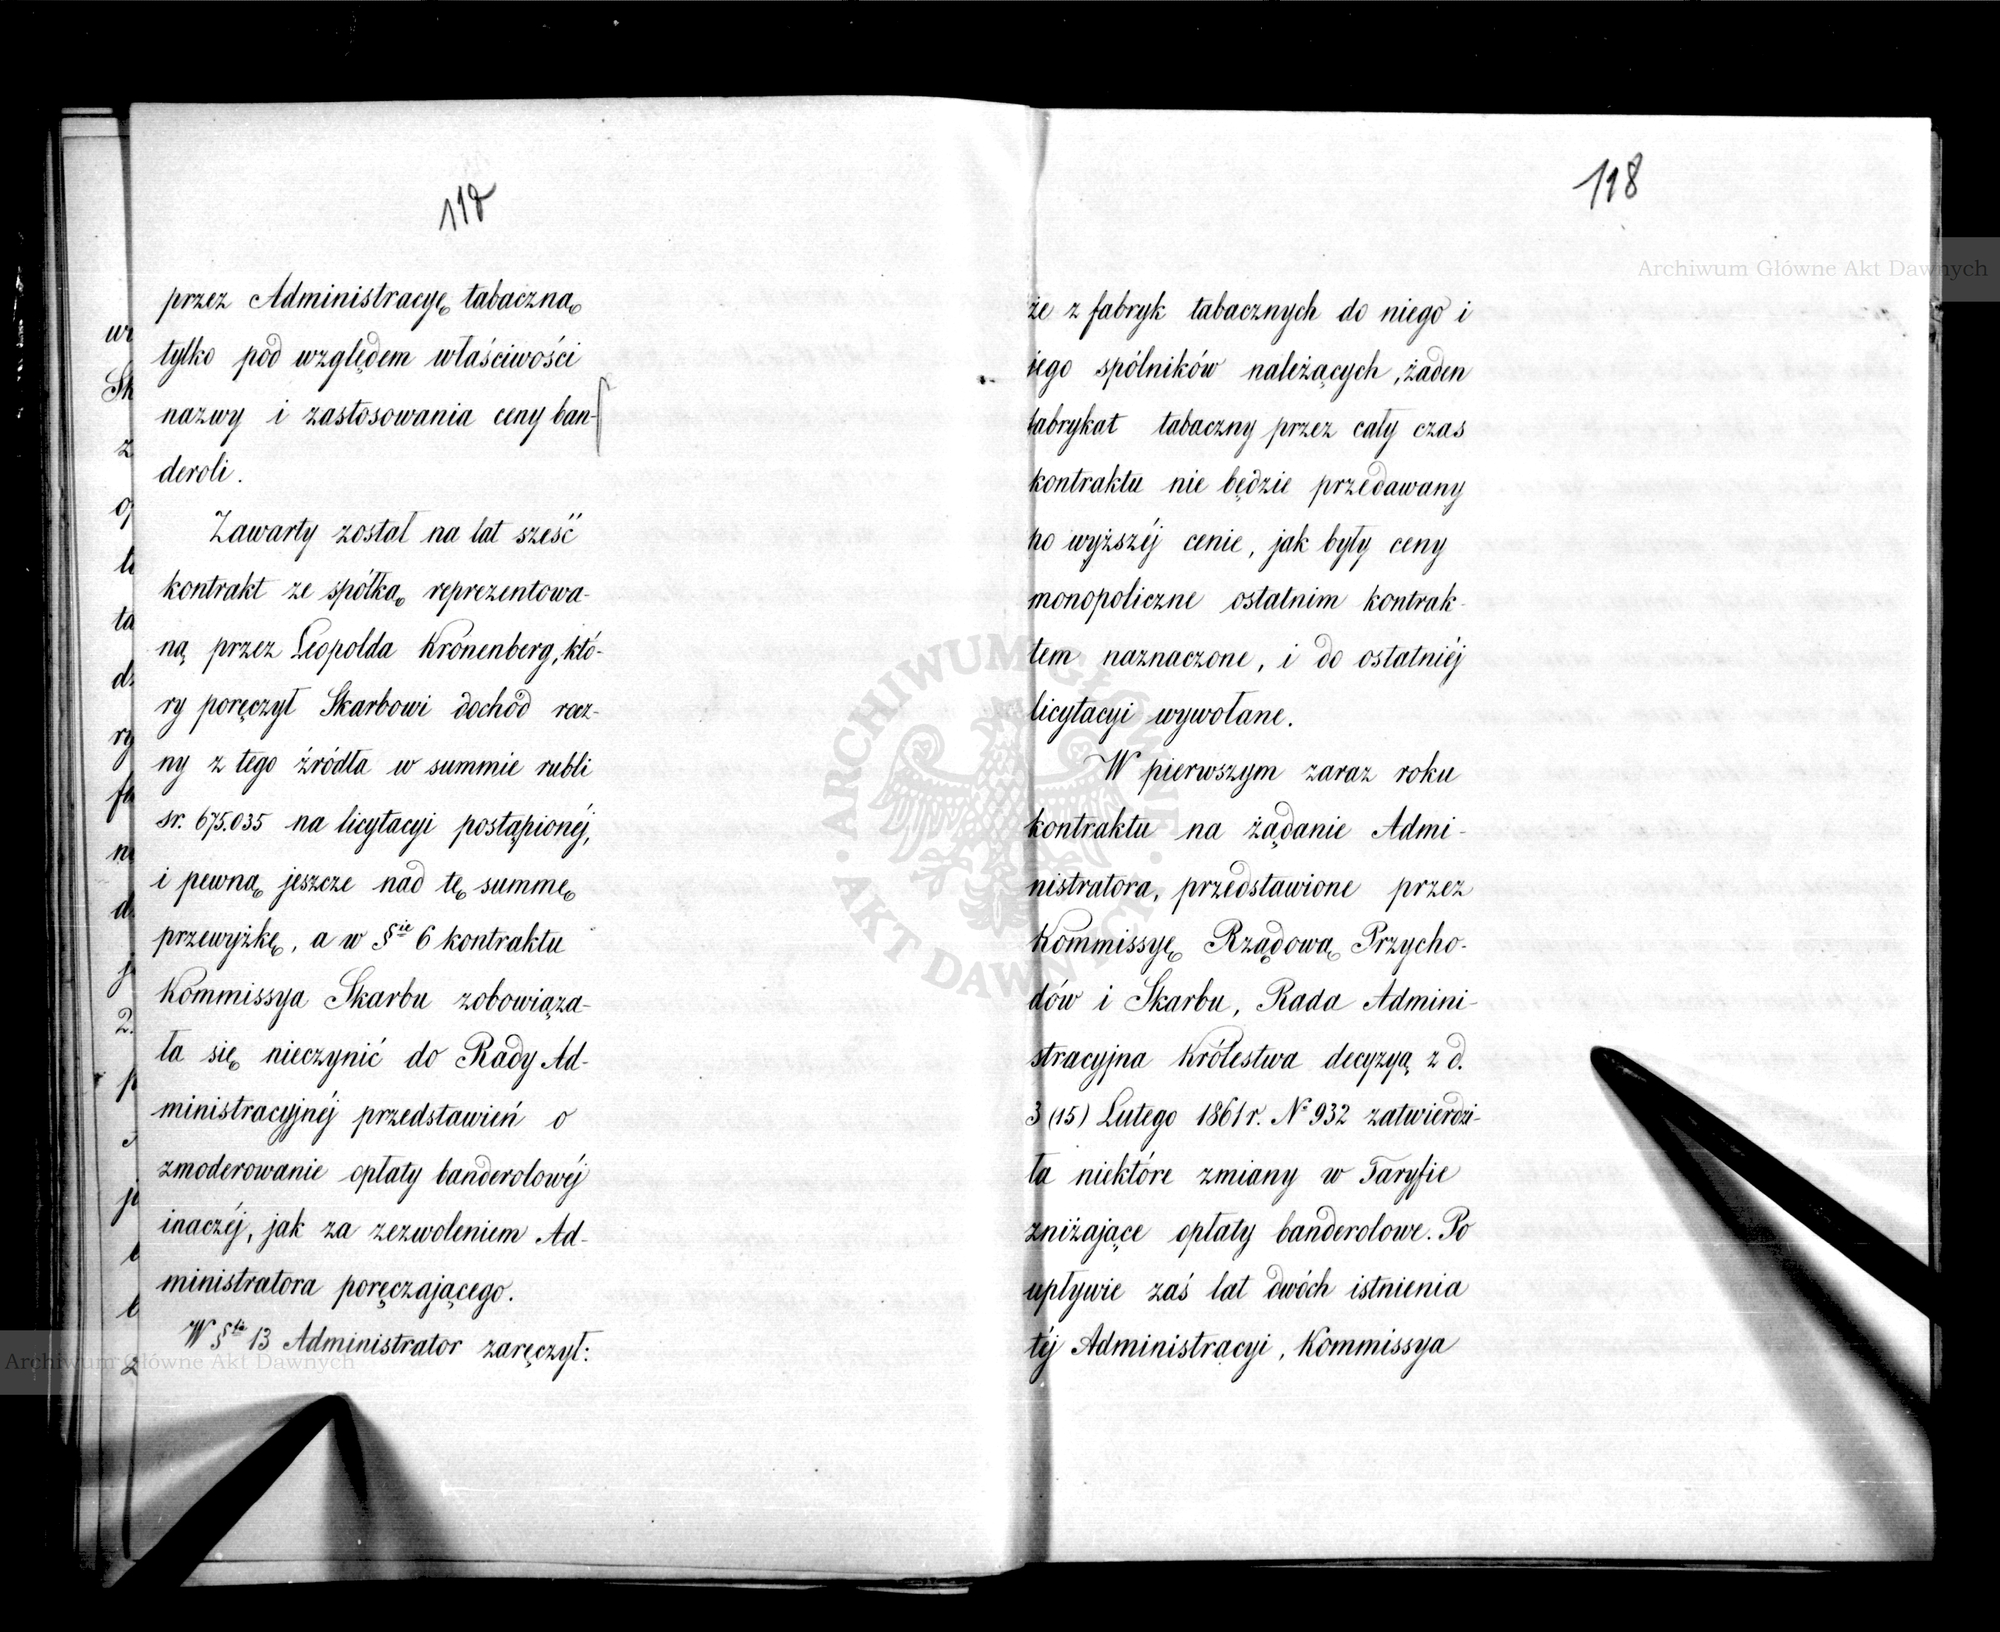 118
przez Administracyę tabaczną
tylko pod względem właściwości
nazwy i zastosowania ceny ban-
deroli.
Zawarty został na lat sześć
kontrakt ze spółką reprezentowa-
ną przez Leopolda Kronenberg, któ-
ry poręczył Skarbowi dochód rocz-
ny z tego źródła w summie rubli
sr. 675.035 na licytacyi postąpionéj,
i pewną jeszcze nad tę summę
przewyżkę, a w §ie 6 kontraktu
Kommissya Skarbu zobowiąza-
ła się nieczynić do Rady Ad-
ministracyjnéj przedstawień o
zmoderowanie opłaty banderolowéj
inaczéj, jak za zezwoleniem Ad-
ministratora poręczającego.
W § 13 Administrator zaręczył:
że z fabryk tabacznych do niego i
iego spólników należących, żaden
fabrykat tabaczny przez cały czas
kontraktu nie będzie przedawany
po wyższéj cenie, jak były ceny
monopoliczne ostatnim kontrak-
tem naznaczone, i do ostatniéj
licytacyi wywołane.
W pierwszym zaraz roku
kontraktu na żądanie Admi-
nistratora, przedstawione przez
Kommissyę Rządową Przycho-
dów i Skarbu, Rada Admini-
stracyjna Królestwa decyzyą z d.
3 (15) Lutego 1861 r. № 932 zatwierdzi-
ła niektóre zmiany w Taryfie
zniżające opłaty banderolowe. Po
upływie zaś lat dwóch istnienia
téj Administracyi, Kommissya
Archiwum Główne Akt Dawnych
Archiwum Główne Akt Dawnych
ARCHIWUM GŁÓWNE · AKT DAWNYCH ·